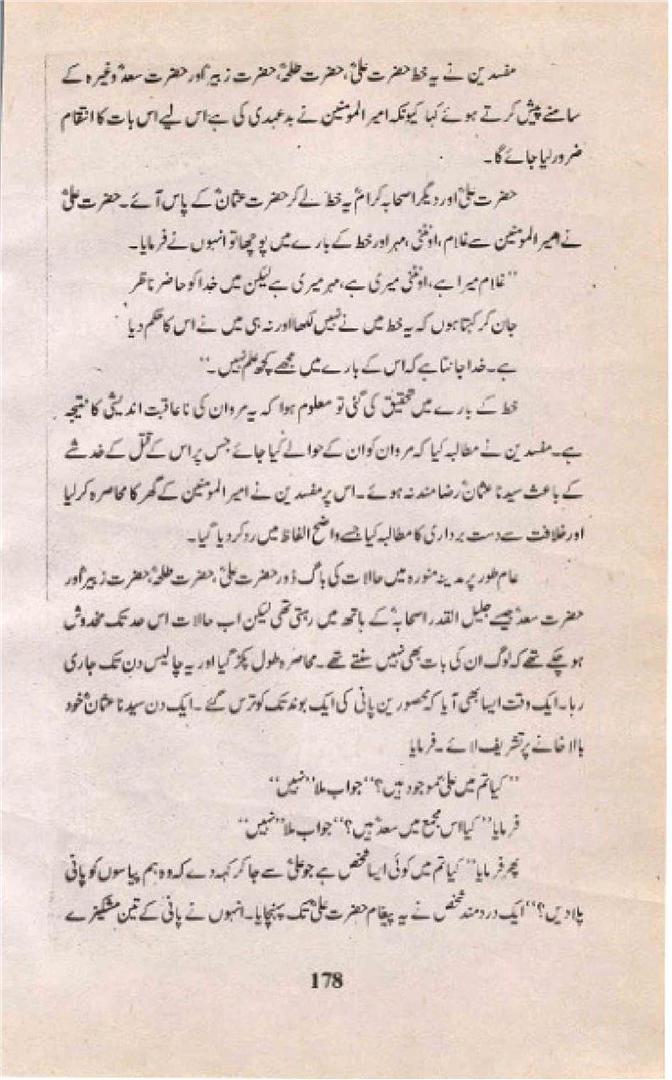 مفسدین نے یہ خط حضرت علیؓ، حضرت طلحہؓ، حضرت زبیرؓ اور حضرت سعدؓ وغیرہ کے
سامنے پیش کرتے ہوئے کہا کیونکہ امیر المومنین نے بدعہدی کی ہے اس لیے اس بات کا انتقام
ضرور لیا جائے گا۔
حضرت علیؓ اور دیگر اصحابہ کرامؓ یہ خط لے کر حضرت عثمانؓ کے پاس آئے۔ حضرت علیؓ
نے امیر المومنین سے غلام، اونٹنی، مہر اور خط کے بارے میں پوچھا تو انہوں نے فرمایا۔
”غلام میرا ہے، اونٹنی میری ہے، مہر میری ہے لیکن میں خدا کو حاضر ناظر
جان کر کہتا ہوں کہ یہ خط میں نے نہیں لکھا اور نہ ہی میں نے اس کا حکم دیا
ہے۔ خدا جانتا ہے کہ اس کے بارے میں مجھے کچھ علم نہیں۔“
خط کے بارے میں تحقیق کی گئی تو معلوم ہوا کہ یہ مروان کی ناعاقبت اندیشی کا نتیجہ
ہے۔ مفسدین نے مطالبہ کیا کہ مروان کو ان کے حوالے کیا جائے جس پر اس کے قتل کے خدشے
کے باعث سیدنا عثمانؓ رضامند نہ ہوئے۔ اس پر مفسدین نے امیر المومنین کے گھر کا محاصرہ کر لیا
اور خلافت سے دست برداری کا مطالبہ کیا جسے واضح الفاظ میں رد کر دیا گیا۔
عام طور پر مدینہ منورہ میں حالات کی باگ ڈور حضرت علیؓ، حضرت طلحہؓ، حضرت زبیرؓ اور
حضرت سعدؓ جیسے جلیل القدر اصحابہؓ کے ہاتھ میں رہتی تھی لیکن اب حالات اس حد تک مخدوش
ہو چکے تھے کہ لوگ ان کی بات بھی نہیں سنتے تھے۔ محاصرہ طول پکڑ گیا اور یہ چالیس دن تک جاری
رہا۔ ایک وقت ایسا بھی آیا کہ محصورین پانی کی ایک بوند تک کو ترس گئے۔ ایک دن سیدنا عثمانؓ خود
بالا خانے پر تشریف لائے۔ فرمایا
”کیا تم میں علیؓ موجود ہیں؟“ جواب ملا ”نہیں“
فرمایا ”کیا اس مجمع میں سعدؓ ہیں؟“ جواب ملا ”نہیں“
پھر فرمایا ”کیا تم میں کوئی ایسا شخص ہے جو علیؓ سے جا کر کہہ دے کہ وہ ہم پیاسوں کو پانی
پلا دیں؟“ ایک دردمند شخص نے یہ پیغام حضرت علیؓ تک پہنچایا۔ انہوں نے پانی کے تین مشکیزے
178